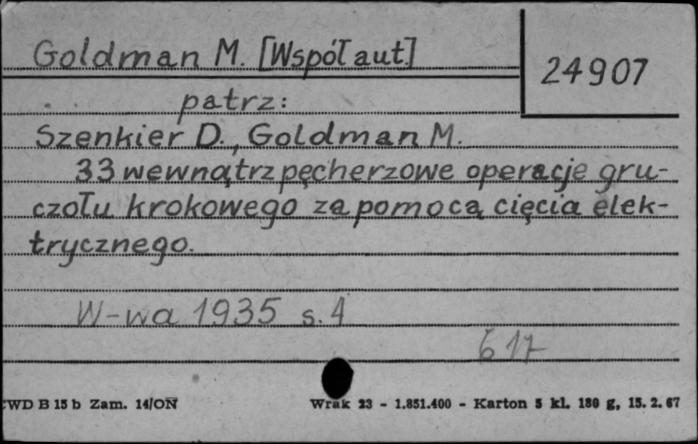 Goldman M. [Współaut.]
24907
patrz:
Szenkier D., Goldman M.
33 wewnątrzpęcherzowe operacje gru-
czołu krokowego za pomocą cięcia elek-
trycznego.
W-wa 1935 s. 4
617
WD B 15 b Zam. 14/ON Wrak 23 - 1.851.400 - Karton 5 kl. 180 g, 15. 2. 67